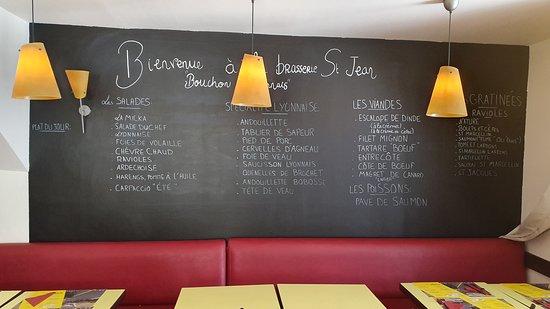 Bienvenue à la brasserie St Jean
Bouchon
Les SALADES:
LA MILKA
SALADE DU CHEF
LYONNAISE
FOIES DE VOLAILLE
CHÈVRE CHAUD
RAVIOLES
ARDECHOISE
HARENGS, POMME À L'HUILE
CARPACCIO "ÉTÉ"
PLAT DU JOUR:
LYONNAISE
ANDOUILLETTE
TABLIER DE SAPEUR
PIED DE PORC
CERVELLES D'AGNEAU
FOIE DE VEAU
SAUCISSON LYONNAIS
QUENELLES DE BROCHET
ANDOUILLETTE BOBOSSE
TÊTE DE VEAU
LES VIANDES
ESCALOPE DE DINDE
FILET MIGNON
TARTARE BOEUF
ENTRECÔTE
CÔTE DE BOEUF
MAGRET DE CANARD
LES POISSONS:
PAVE DE SAUMON
GRATINÉES
RAVIOLES
NATURE
ST MARCELLIN
TARTIFLETTE
ST JACQUES